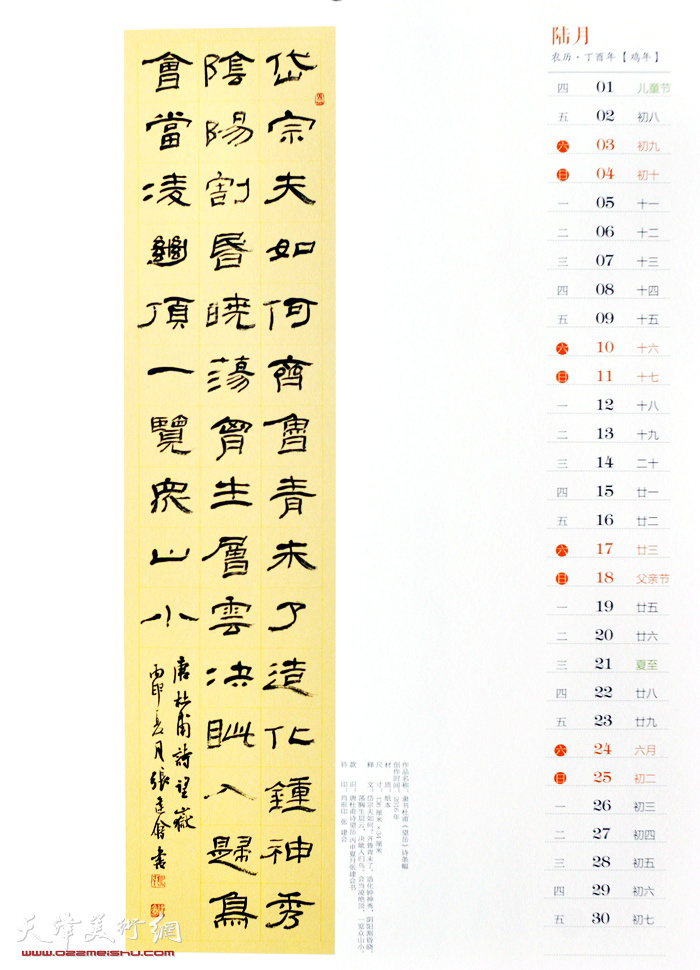 岱宗夫如何齊魯青未了造化鍾神秀
陰陽割昏曉蕩胷生層雲決眦入歸鳥
會當凌絕頂一覽眾山小
唐杜甫詩望嶽
丙申夏月張建會書
作品名称：隶书杜甫《望岳》诗条幅
创作时间：2016年
材 质：纸本
尺 寸：136厘米×34厘米
释 文：岱宗夫如何？齐鲁青未了。造化钟神秀，阴阳割昏晓。
荡胸生层云，决眦入归鸟。会当凌绝顶，一览众山小。
款 识：唐杜甫诗望岳 丙申夏月张建会书
钤 印：肖形印 张 建会
陆月
农历·丁酉年【鸡年】
四 01 儿童节
五 02 初八
六 03 初九
日 04 初十
一 05 十一
二 06 十二
三 07 十三
四 08 十四
五 09 十五
六 10 十六
日 11 十七
一 12 十八
二 13 十九
三 14 二十
四 15 廿一
五 16 廿二
六 17 廿三
日 18 父亲节
一 19 廿五
二 20 廿六
三 21 夏至
四 22 廿八
五 23 廿九
六 24 六月
日 25 初二
一 26 初三
二 27 初四
三 28 初五
四 29 初六
五 30 初七
天津美術網
www.022meishu.com